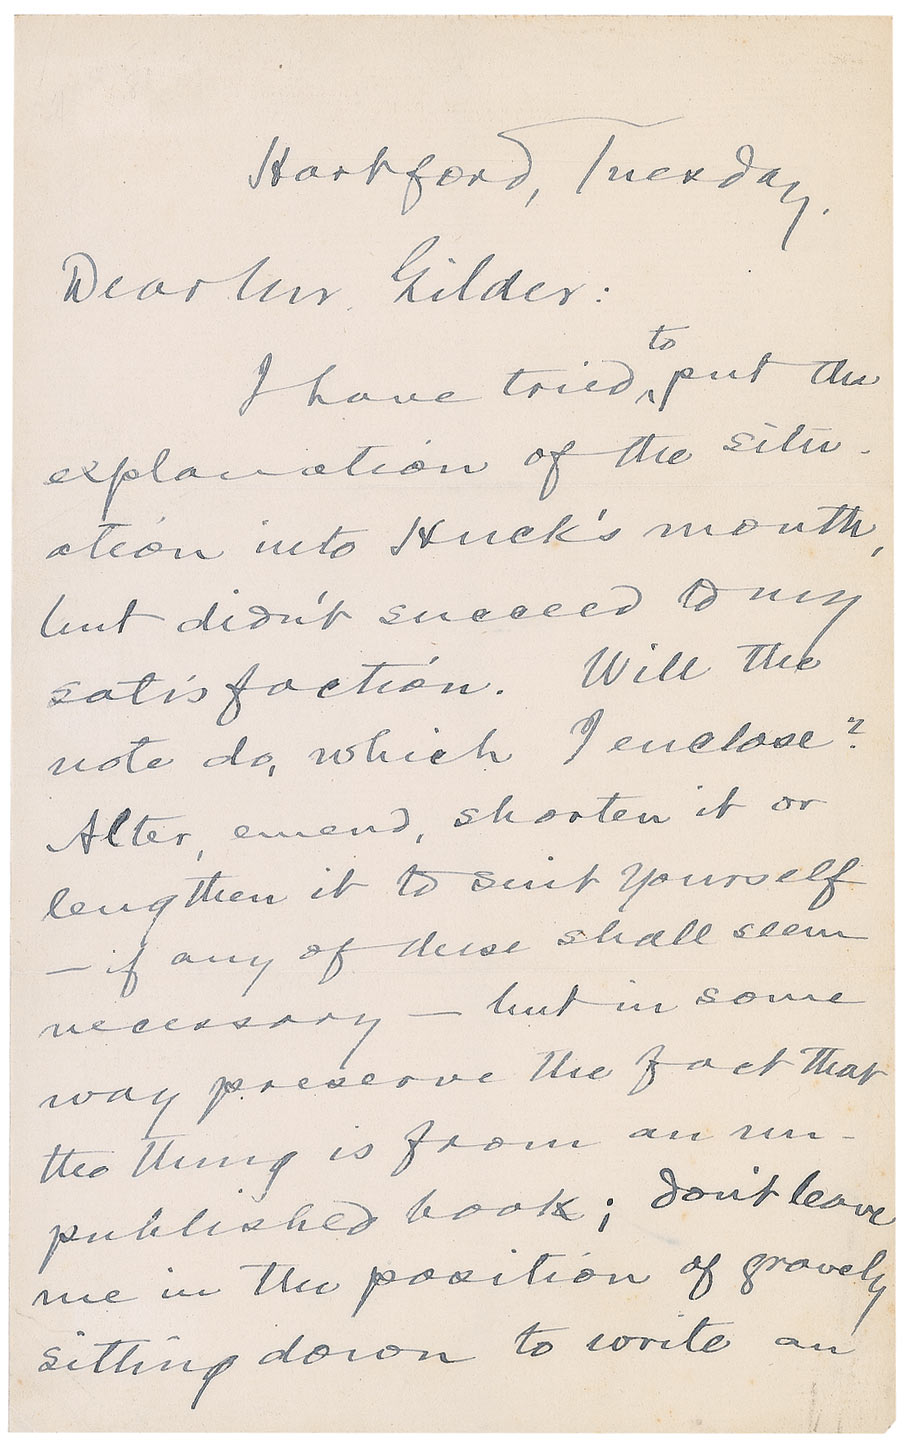 Hartford, Tuesday.
Dear Mr. Gilder:
I have tried to put the
explanation of the situ-
ation into Huck's mouth,
but didn't succeed to my
satisfaction. Will the
note do, which I enclose?
Alter, emend, shorten it or
lengthen it to suit yourself
— if any of these shall seem
necessary — but in some
way preserve the fact that
the thing is from an un-
published book; don't leave
me in the position of gravely
sitting down to write an